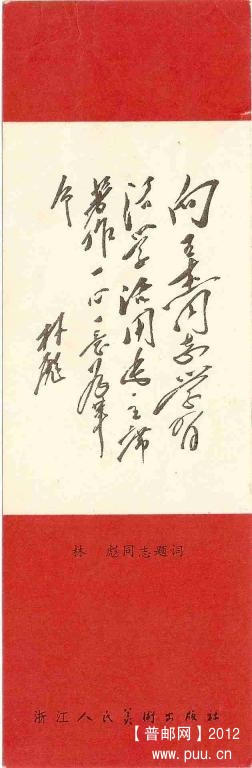 向王杰同志学習
活学活用毛主席
著作一心一意为革
命
林彪
林 彪同志题词
浙江人民美術出版社
【普邮网】2012
www.puu.cn